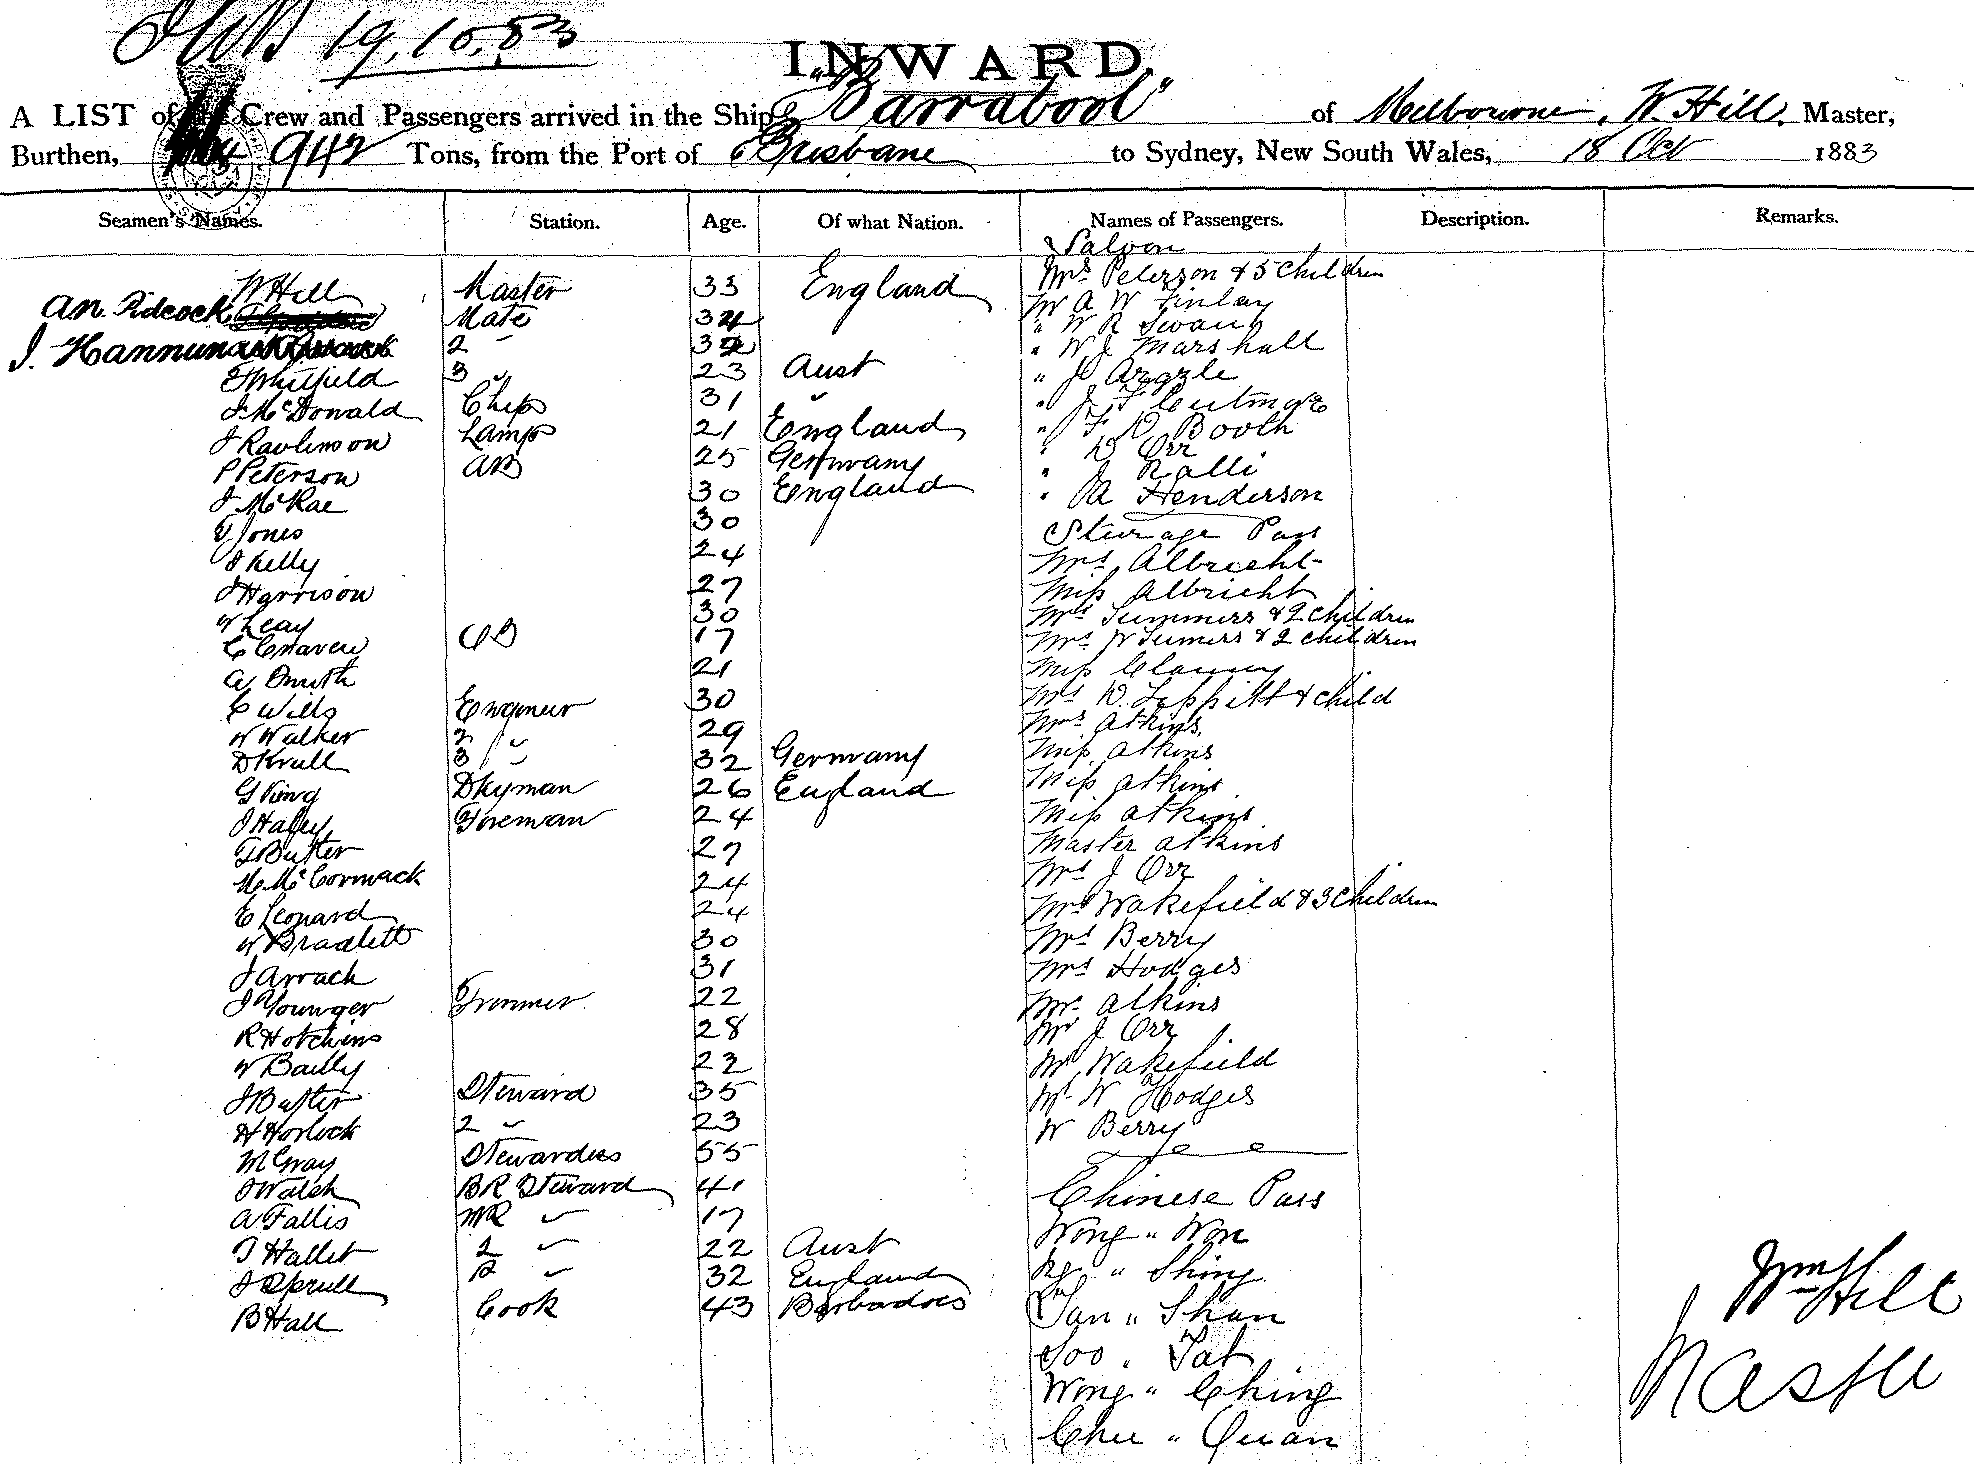 19.10.83
INWARD.
A LIST of the Crew and Passengers arrived in the Ship "Barrabool" of Melbourne, W. Hill, Master,
Burthen, 942 Tons, from the Port of Brisbane to Sydney, New South Wales, 18 Oct 1883
Seamen's Names. Station. Age. Of what Nation. Names of Passengers. Description. Remarks.
Saloon
W Hill Master 33 England Mrs Peterson & 5 children
An. Pidcock Mate 34 Mr A W Finlay
J. Hannun 2 " 32 " W R Swan
T Whitfield 3 " 23 Aust " W J Marshall
J McDonald Chips 31 " " J Argyle
J Rawlinson Lamps 21 England " J F
P Peterson AB 25 Germany " F D Booth
J McRae 30 England " D Orr
T Jones 30 " J Ralli
J Kelly 24 " A Henderson
J Harrison 27 Steerage Pass
W Leay 30 Mrs Albrecht
C Craven OS 17 Miss Albricht
A Smith 21 Mrs Summers & 2 children
C Wills Engineer 30 Mrs W Sumers & 2 children
W Walker 2 " 29 Miss Clancy
D Krull 3 " 32 Germany Mrs D. Leppitt & child
G King Dkyman 26 England Mrs Atkins
J Haley Fireman 24 Miss Atkins
T Butler 27 Miss Atkins
M McCormack 24 Miss Atkins
E Leonard 24 Master Atkins
W Bradlett 30 Mrs J Orr
J Arrach 31 Mrs Wakefield & 3 children
J Younger Trimmer 22 Mrs Berry
R Hotchins 28 Mrs Hodges
W Bailly 22 Mr Atkins
J Butler Steward 35 Mr J Orr
H Horlock 2 " 23 Mr Wakefield
M Gray Stewardess 55 Mr W Hodges
J Walsh BR Steward 41 W Berry
A Fallis MR " 17 Chinese Pass
T Hallet 2 " 22 Aust Wong " Won
J Sprull " 32 England " Shing
B Hall Cook 43 Barbadoes San " Shan
Soo " Tat
Wong " Ching
Chu " Quan
Wm Hill
Master